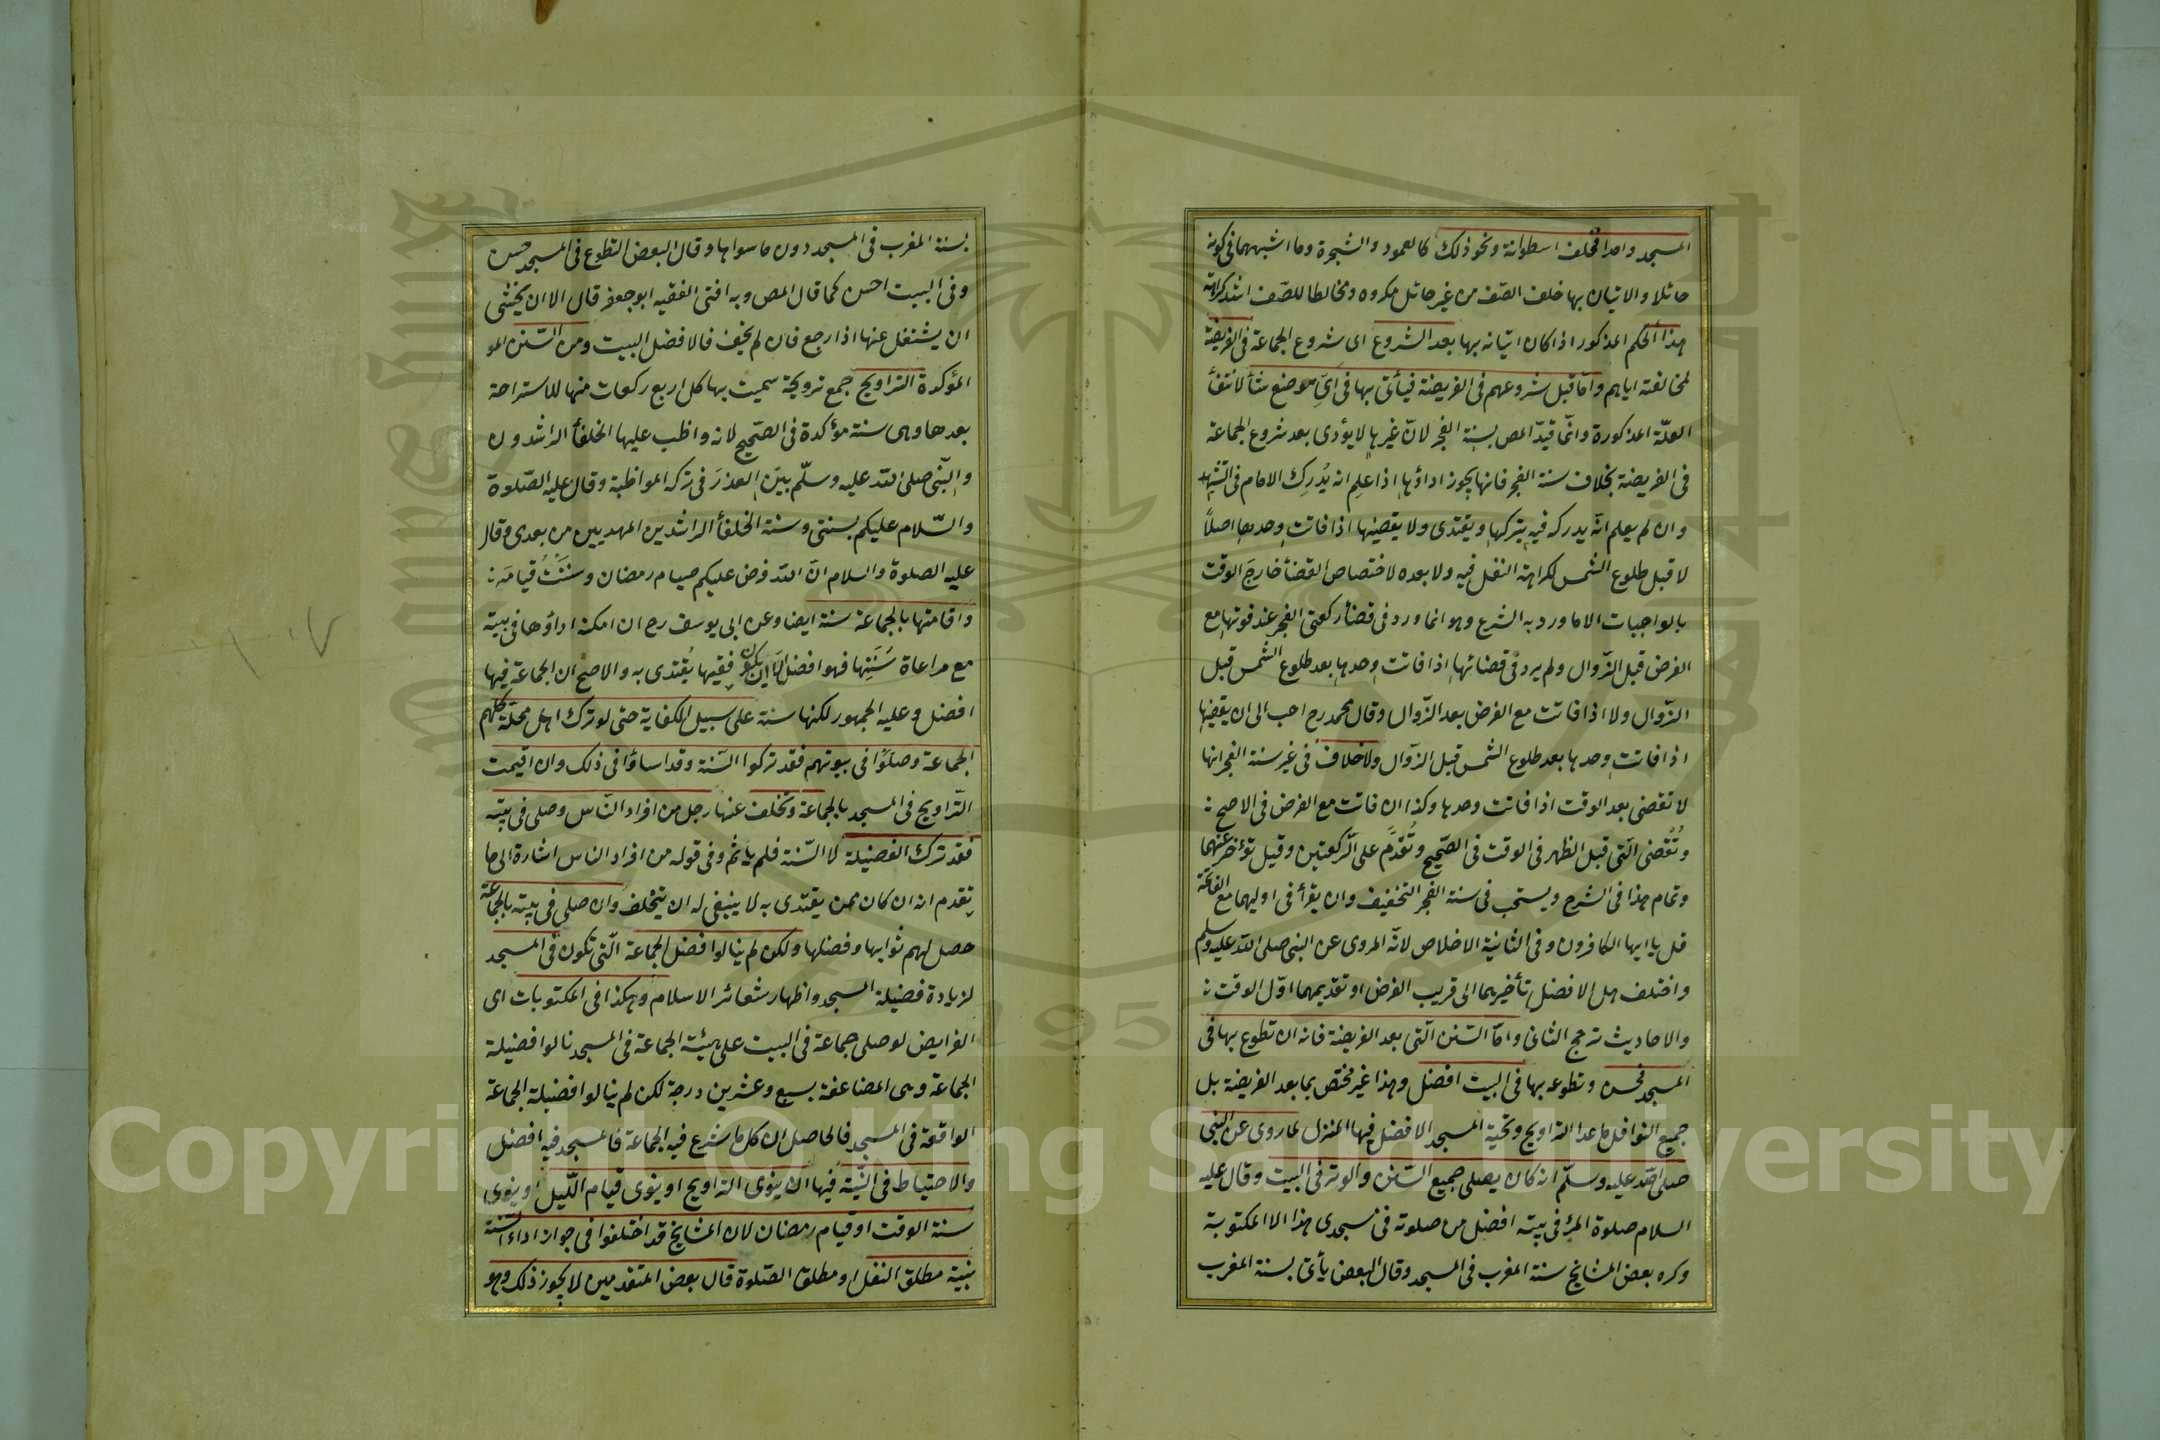 المسجد واحدا فخلف اسطوانة ونحو ذلك كالعمود والشجرة وما اشبههما في كونه
حائلا والاتيان بها خلف الصّف من غير حائل مكروه ومخالطا للصّف اشد كراهة
هذا الحكم المذكور اذا كان اتيانه بها بعد الشروع اى شروع الجماعة فى الفريضة
لمخالفته اياهم وامّا قبل شروعهم فى الفريضة فيأتى بها فى اىّ موضع شأ لانتفأ
العلّة المذكورة وانّما قيّد المص بسنة الفجر لانّ غيرها لا يؤدى بعد شروع الجماعة
فى الفريضة بخلاف سنة الفجر فانها يجوز اداؤها اذا علم انه يُدرِك الامام فى التّشهد
وان لم يعلم انّه يدركه فيه يتركها ويقتدى ولا يقضيها اذا فاتت وحدها اصلاً
لا قبل طلوع الشمس لكراهة النفل فيه ولا بعده لاختصاص القضأ خارجَ الوقت
بالواجبات الا ما ورد به الشرع وهو انما ورد فى قضأ ركعتى الفجر عند فوتها مع
الفرض قبل الزّوال ولم يرد فى قضائها اذا فاتت وحدها بعد طلوع الشمس قبل
الزّوال ولا اذا فاتت مع الفرض بعد الزّوال وقال محمد رح احب الى ان يقضيها
اذا فاتت وحدها بعد طلوع الشمس قبل الزوال ولا خلاف فى غير سنة الفجر انها
لا تقضى بعد الوقت اذا فاتت وحدها وكذا ان فاتت مع الفرض فى الاصح
وتُقضى الّتى قبل الظهر فى الوقت فى الصّحيح وتُقدَّم على الرّكعتين وقيل تؤخر عنهما
وتمام هذا فى الشرح ويستحب فى سنة الفجر التخفيف وان يقرأ فى اوليهما مع الفاتحة
قل يا ايها الكافرون وفى الثانية الاخلاص لانّه المروى عن النبى صلى الله عليه وسلم
واختلف هل الافضل تأخيرهما الى قريب الفرض او تقديمهما اوّل الوقت
والاحاديث ترجح الثانى وامّا السّنن الّتى بعد الفريضة فانه ان تطوع بها فى
المسجد فحسن وتطوعه بها فى البيت افضل وهذا غير مختص بما بعد الفريضة بل
جميع النوافل ما عدا التراويح وتحية المسجد الافضل فيها المنزل لما روى عن النّبى
صلى الله عليه وسلّم انه كان يصلى جميع السّنن والوتر فى البيت وقال عليه
السلام صلوة المرء فى بيته افضل من صلوته فى مسجدى هذا الا المكتوبة
وكره بعض المشايخ سنة المغرب فى المسجد وقال البعض يأتى بسنة المغرب
بسنة المغرب فى المسجد دون ما سواها وقال البعض التطوع فى المسجد حسن
وفى البيت احسن كما قال المص وبه افتى الفقيه ابو جعفر قال الا ان يخشى
ان يشتغل عنها اذا رجع فان لم يخف فالافضل البيت ومن السّنن المو
المؤكدة التراويح جمع ترويحة سميت بها كل اربع ركعات منها للاستراحة
بعدها وهى سنة مؤكدة فى الصّحيح لانه واظب عليها الخلفأ الراشدون
والنّبى صلى الله عليه وسلّم بيّن العذرَ فى تركه المواظبة وقال عليه الصّلوة
والسّلام عليكم بسنتى وسنة الخلفأ الراشدين المهديين من بعدى وقال
عليه الصلوة والسلام انّ الله فرض عليكم صيام رمضان وسَنَنْتُ قيامَه
واقامتها بالجماعة سنة ايضا وعن ابى يوسف رح ان امكنه اداؤها فى بيته
مع مراعاة سُنَنِها فهو افضل الّا ان يكون فقيها يُقتدى به والاصح ان الجماعة فيها
افضل وعليه الجمهور لكنها سنة على سبيل الكفاية حتى لو ترك اهل محلّة كلهم
الجماعة وصلّوا فى بيوتهم فقد تركوا السّنة وقد اساؤا فى ذلك وان اقيمت
التّراويح فى المسجد بالجماعة وتخلف عنها رجل من افراد النّاس وصلى فى بيته
فقد ترك الفضيلة لا السّنة فلم يأثم وفى قوله من افراد الناس اشارة الى ما
تقدم انه ان كان ممن يقتدى به لا ينبغى له ان يتخلف وان صلى فى بيته بالجماعة
حصل لهم ثوابها وفضلها ولكن لم ينالوا فضل الجماعة الّتى تكون فى المسجد
لزيادة فضيلة المسجد واظهار شعائر الاسلام وهكذا فى المكتوبات اى
الفرايض لو صلى جماعة فى البيت على هيئة الجماعة فى المسجد نالوا فضيلة
الجماعة وهى المضاعفة بسبع وعشرين درجة لكن لم ينالوا فضيلة الجماعة
الواقعة فى المسجد فالحاصل ان كل ما شرع فيه الجماعة فالمسجد فيه افضل
والاحتياط فى النيّة فيها ان ينوى التراويح او ينوى قيام اللّيل او ينوى
سنة الوقت او قيام رمضان لان المشايخ قد اختلفوا فى جواز اداء السنة
بنية مطلق النفل او مطلق الصّلوة قال بعض المتقدمين لا يجوز ذلك وهو
Copyright © King Saud University